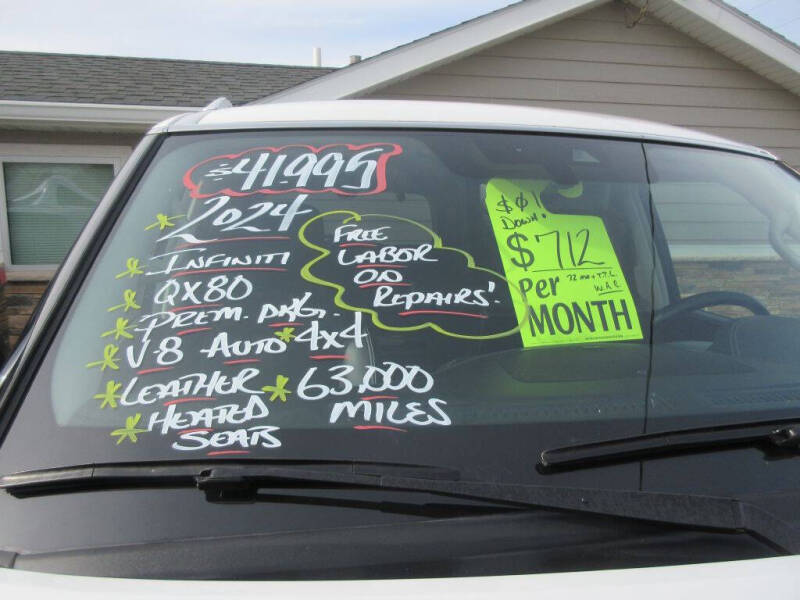 $41,995
2024
INFINITI
QX80
PREM. PKG.
V-8 AUTO 4x4
LEATHER
HEATED
SEATS
63,000
MILES
FREE
LABOR
ON
REPAIRS!
$0!
DOWN!
$712
72 mo + T.T.L.
W.A.C.
Per
MONTH